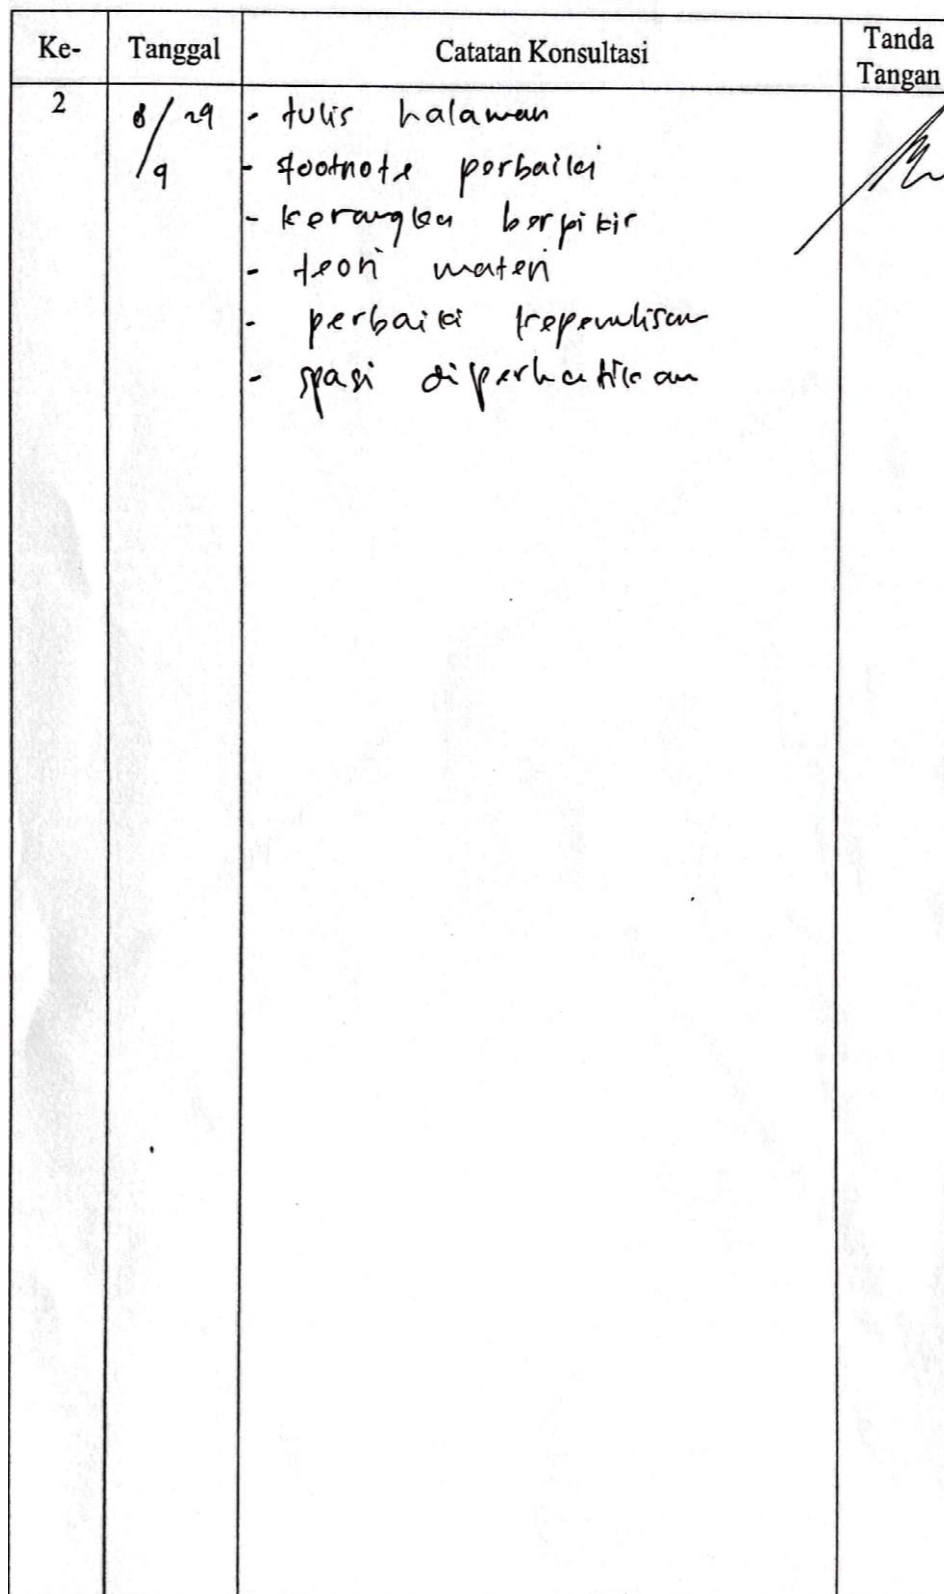 Ke- Tanggal Catatan Konsultasi Tanda Tangan
2 8/29 - tulis halaman
/9 - footnote perbaiki
- kerangka berpikir
- teori materi
- perbaiki kepenulisan
- spasi diperhatikan